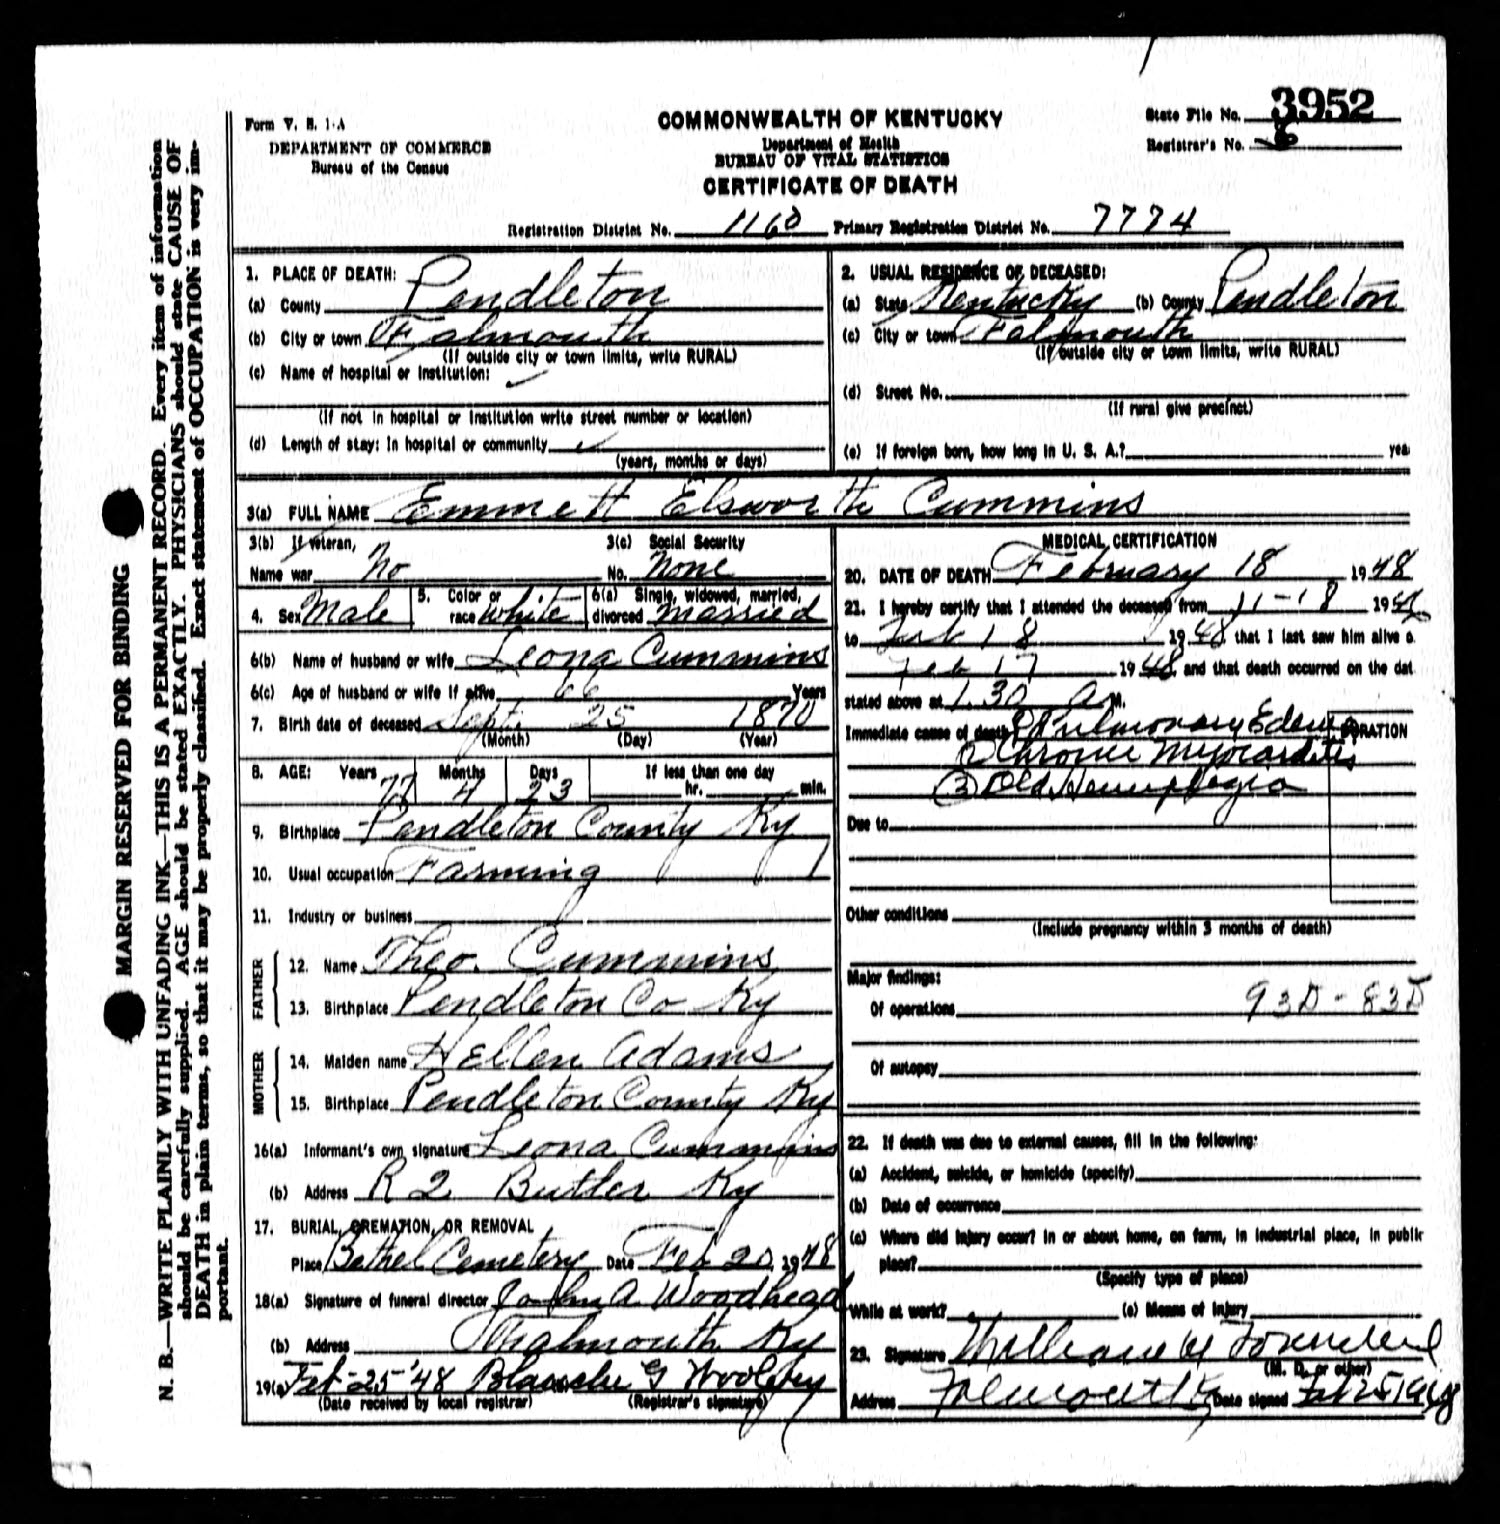 Form V. S. 1-A
DEPARTMENT OF COMMERCE
Bureau of the Census
COMMONWEALTH OF KENTUCKY
Department of Health
BUREAU OF VITAL STATISTICS
CERTIFICATE OF DEATH
State File No. 3952
Registrar's No.
Registration District No. 1160 Primary Registration District No. 7774
MARGIN RESERVED FOR BINDING
N. B.—WRITE PLAINLY WITH UNFADING INK—THIS IS A PERMANENT RECORD. Every item of information
should be carefully supplied. AGE should be stated EXACTLY. PHYSICIANS should state CAUSE OF
DEATH in plain terms, so that it may be properly classified. Exact statement of OCCUPATION is very im-
portant.
1. PLACE OF DEATH:
(a) County Pendleton
(b) City or town Falmouth
(If outside city or town limits, write RURAL)
(c) Name of hospital or institution:
(If not in hospital or institution write street number or location)
(d) Length of stay: In hospital or community
(years, months or days)
2. USUAL RESIDENCE OF DECEASED:
(a) State Kentucky (b) County Pendleton
(c) City or town Falmouth
(If outside city or town limits, write RURAL)
(d) Street No.
(If rural give precinct)
(e) If foreign born, how long in U. S. A.? yea
3(a) FULL NAME Emmett Elsworth Cummins
3(b) If veteran,
Name war No
3(c) Social Security
No. None
4. Sex Male
5. Color or
race White
6(a) Single, widowed, married,
divorced married
6(b) Name of husband or wife Leona Cummins
6(c) Age of husband or wife if alive 66 Years
7. Birth date of deceased Sept. 25 1870
(Month) (Day) (Year)
8. AGE: Years Months Days If less than one day
77 4 23 hr. min.
9. Birthplace Pendleton County Ky
10. Usual occupation Farming
11. Industry or business
FATHER
12. Name Theo. Cummins
13. Birthplace Pendleton Co Ky
MOTHER
14. Maiden name Hellen Adams
15. Birthplace Pendleton County Ky
16(a) Informant's own signature Leona Cummins
(b) Address R 2 Butler Ky
17. BURIAL, CREMATION, OR REMOVAL
Place Bethel Cemetery Date Feb 20, 1948
18(a) Signature of funeral director John A. Woodhead
(b) Address Falmouth Ky
19(a) Feb-25-'48 Blanche G Woolery
(Date received by local registrar) (Registrar's signature)
MEDICAL CERTIFICATION
20. DATE OF DEATH February 18 1948
21. I hereby certify that I attended the deceased from 11-18 194
to Feb 18 1948 that I last saw him alive o
Feb 17 1948, and that death occurred on the dat
stated above at 1.30 a M.
Immediate cause of death (1) Pulmonary Edema DURATION
(2) Chronic Myocarditis
(3) Old Hemiplegia
Due to
Other conditions
(Include pregnancy within 3 months of death)
Major findings:
Of operations 93D-83D
Of autopsy
22. If death was due to external causes, fill in the following:
(a) Accident, suicide, or homicide (specify)
(b) Date of occurrence
(c) Where did injury occur? In or about home, on farm, in industrial place, in public
place?
(Specify type of place)
While at work? (e) Means of injury
23. Signature William H Townsend
(M. D. or other)
Address Falmouth Ky Date signed Feb 25 1948